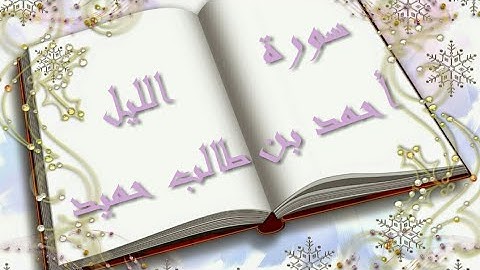 سورة
الليل
أحمد بن طالب حميد